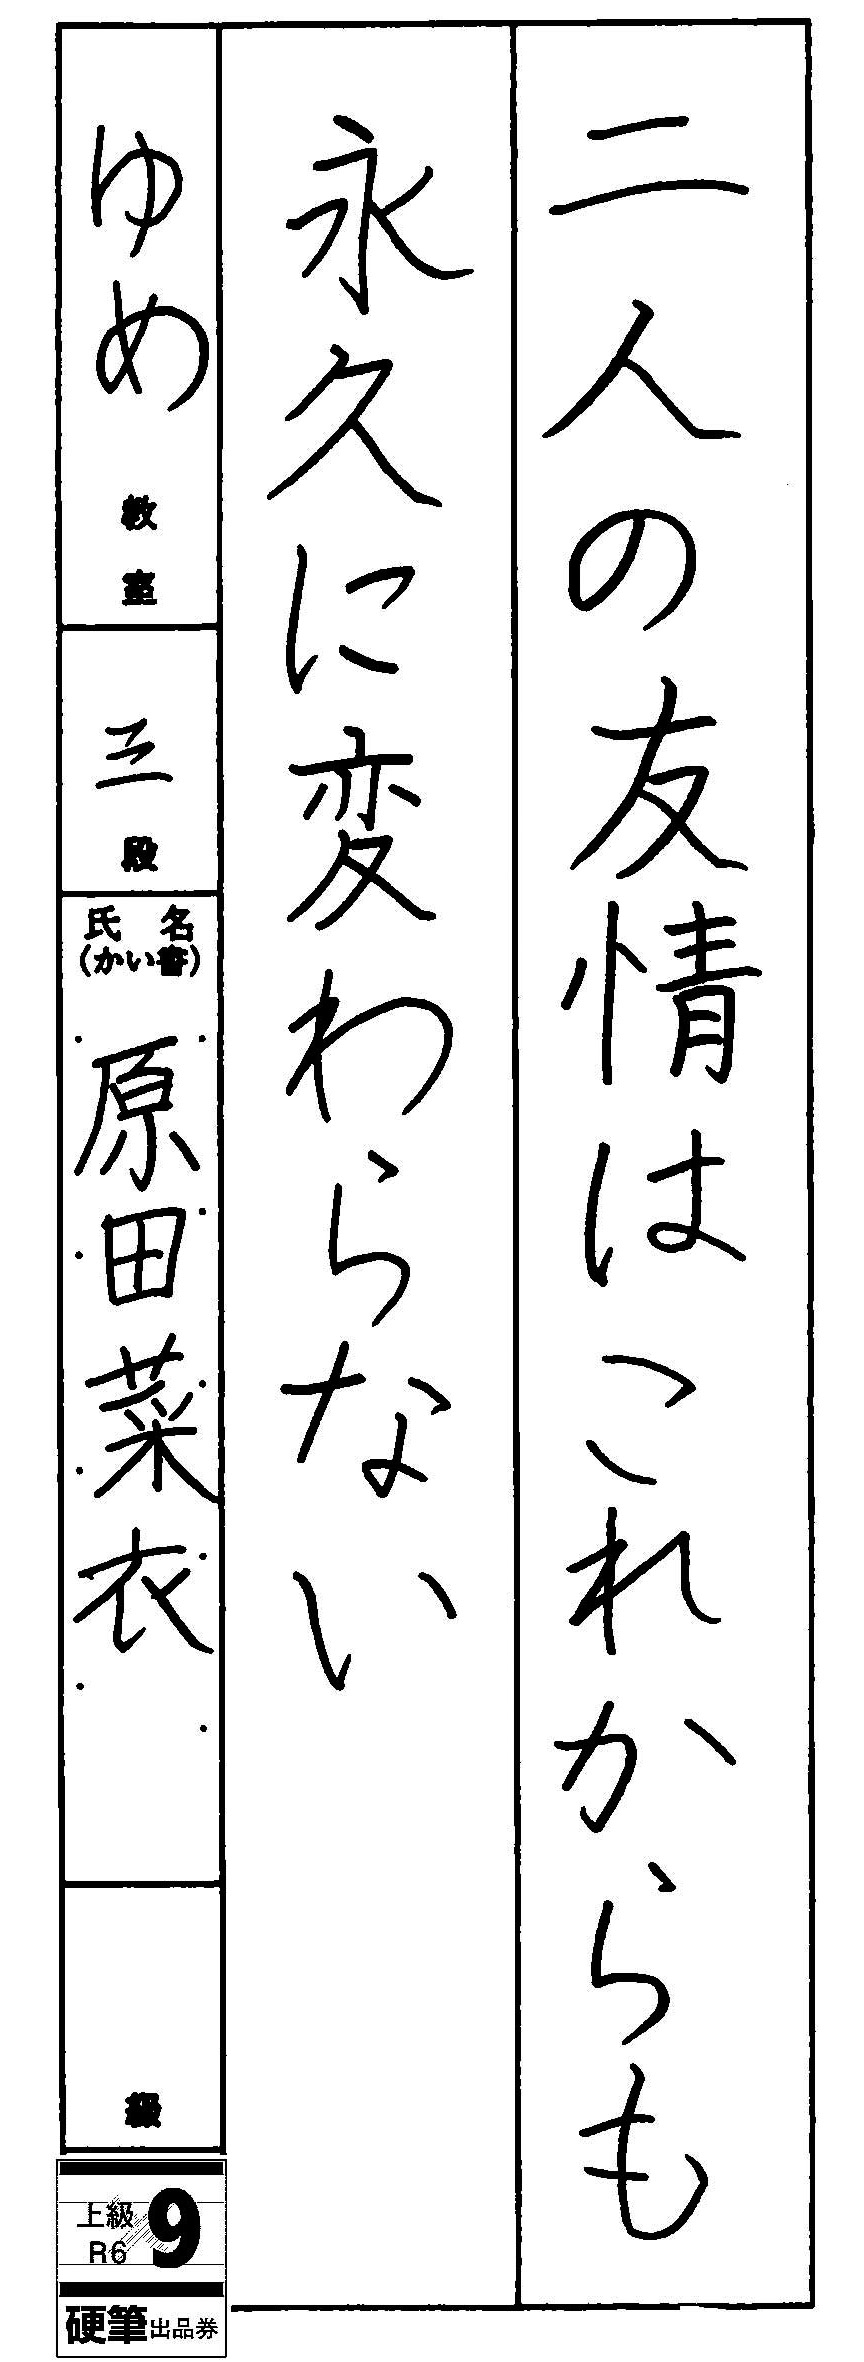 二人の友情はこれからも
永久に変わらない
ゆめ教室
三段
氏名
(かい書)
原田菜衣
級
上級 9
R6
硬筆出品券